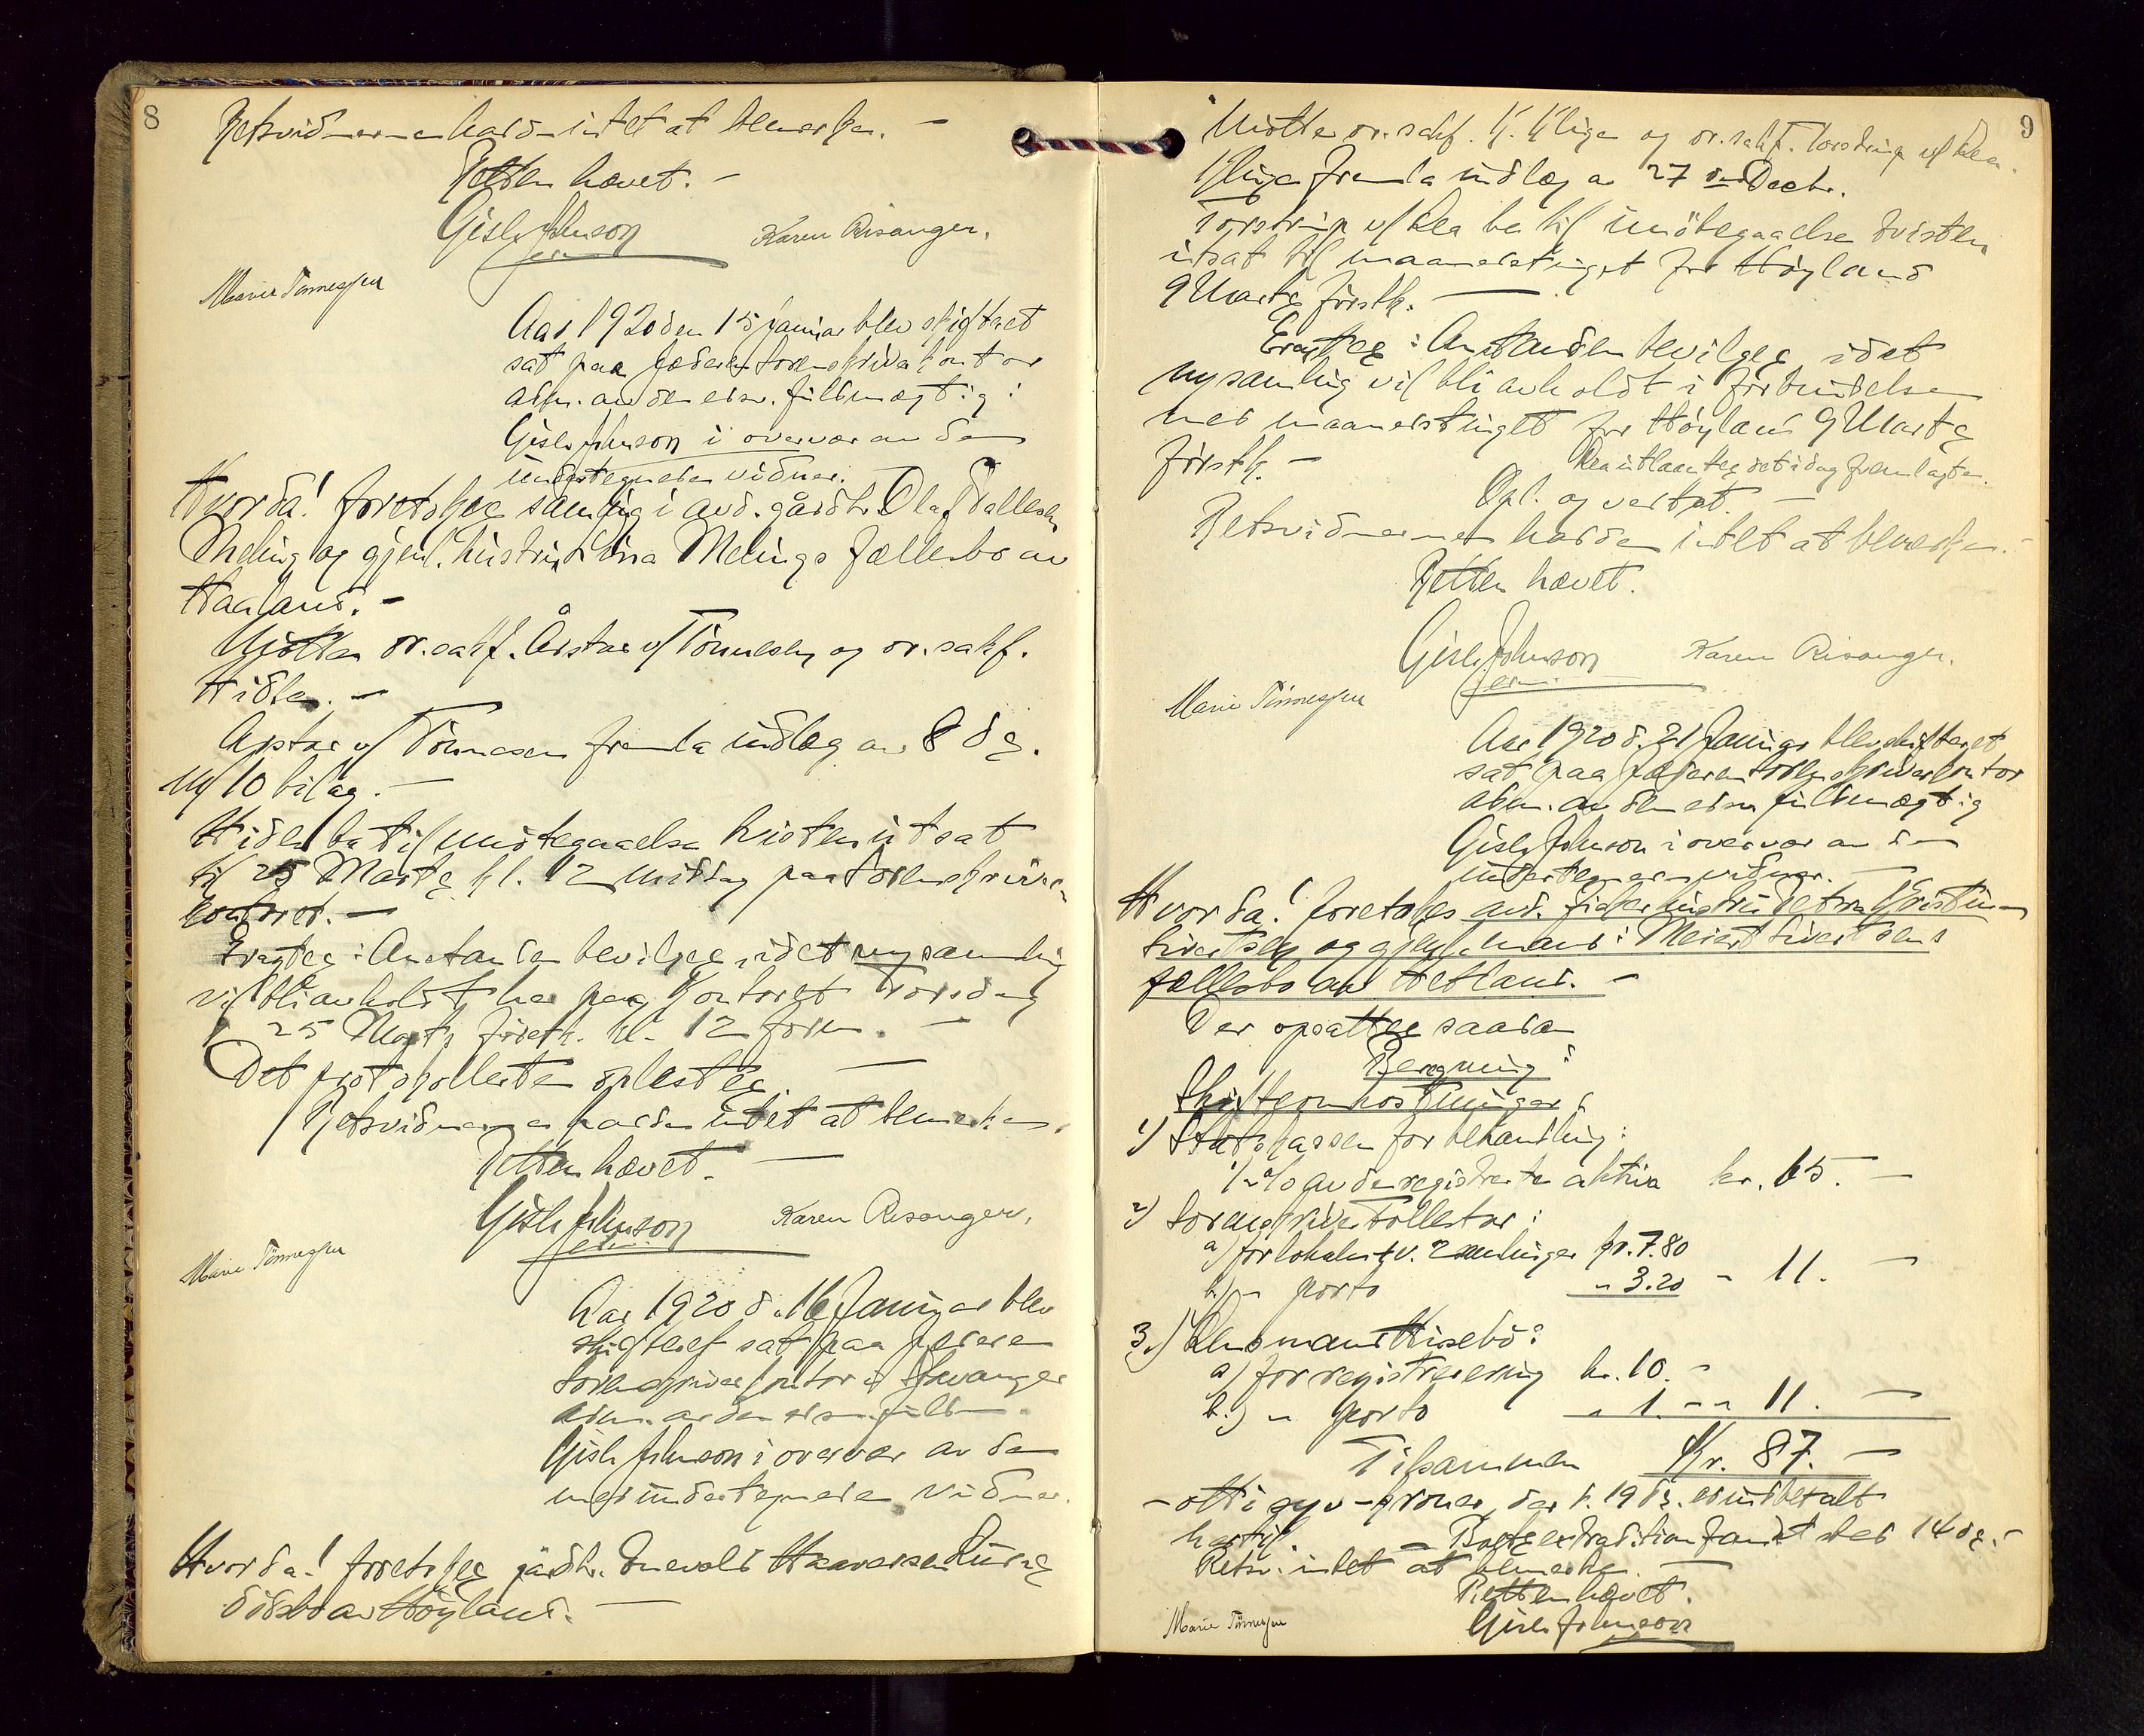 8
Retsvidnerne hadde intet at bemerke. –
Retten hævet. –
Gisle Johnson
Karen Risanger.
Marie Tönnessen
Aar 1920 den 15 januar blev skifteret
sat paa Jæderen sorenskriverkontor
adm. av den edsv. fuldmægtig:
Gisle Johnson i overvær av de
undertegnede vidner.
Hvorda! foretokes samling i avd. gårdbr. Olaf
Meling og gjenl. hustru Meling's fællesbo av
Haaland. –
Mötte or. sakf. Årstad v/ Tönnesen og or. sakf.
Hidle. –
Årstad v/ Tönnesen fremla indlæg av 8 ds.
m/ 10 bilag. –
Hidle ba til imötegaaelse tvisten utsat
til 25 Marts kl. 12 middag paa sorenskriver-
kontoret. –
Eragtes: Anstanden bevilges, idet ny samling
vil bli avholdt her paa kontoret Torsdag
25 Marts förstk. kl. 12 form. –
Det protokollerte oplestes. –
Retsvidnerne hadde intet at bemerke.
Retten hævet. –
Gisle Johnson
Karen Risanger.
Marie Tönnessen
Aar 1920 d. 16 Januar blev
skifteret sat paa Jæderen
sorenskriverkontor i Stavanger
adm. av den edsv. fuldm.
Gisle Johnson i overvær av de
medundertegnede vidner.
Hvorda! foretokes gårdbr. Enevald Haaversen
dödsbo av Höyland. –
9
Mötte or. sakf. K. Kluge og or. sakf. Torstrup v/
Kluge fremla indlæg av 27 Decbr.
Torstrup v/ ba til imötegaaelse tvisten
utsat til maanedstinget for Höyland
9 Marts förstk. –
Eragtes: Anstanden bevilges idet
ny samling vil bli avholdt i forbindelse
med maanedstinget for Höyland 9 Marts
förstk. –
utlaantes det idag fremlagte.
Opl. og vedtat. –
Retsvidnerne hadde intet at bemerke. –
Retten hævet.
Gisle Johnson
Karen Risanger.
Marie Tönnessen
Aar 1920 d. 21 Januar blev skifteret
sat paa Jæderen sorenskriverkontor
adm. av den edsv. fuldmægtig
Gisle Johnson i overvær av de
undertegnede vidner. –
Hvorda! foretokes avd. hustru Kristine
Sivertsen og gjenl. mand: Meier Sivertsens
fællesbo av Hetland. –
Der opsattes saadan
Beregning:
Skifteomkostninger:
1) Statskassen for behandling:
1/2 % av de registrerte aktiva kr. 65. –
2) Sorenskriver Tollestar:
a) for lokale t. v. 2 samlinger kr. 7.80
b) " porto " 3.20 – 11. –
3.) Lensmand Huseby:
a) for registrering kr. 10. –
b.) " porto " 1. – " 11. –
Tilsammen Kr. 87. –
– otti syv – kroner, der d. 19 ds. er indbetalt
hertil. – Boets extradition fandt sted 14 ds. –
Retsv. intet at bemerke. –
Retten hævet.
Gisle Johnson
Marie Tönnessen